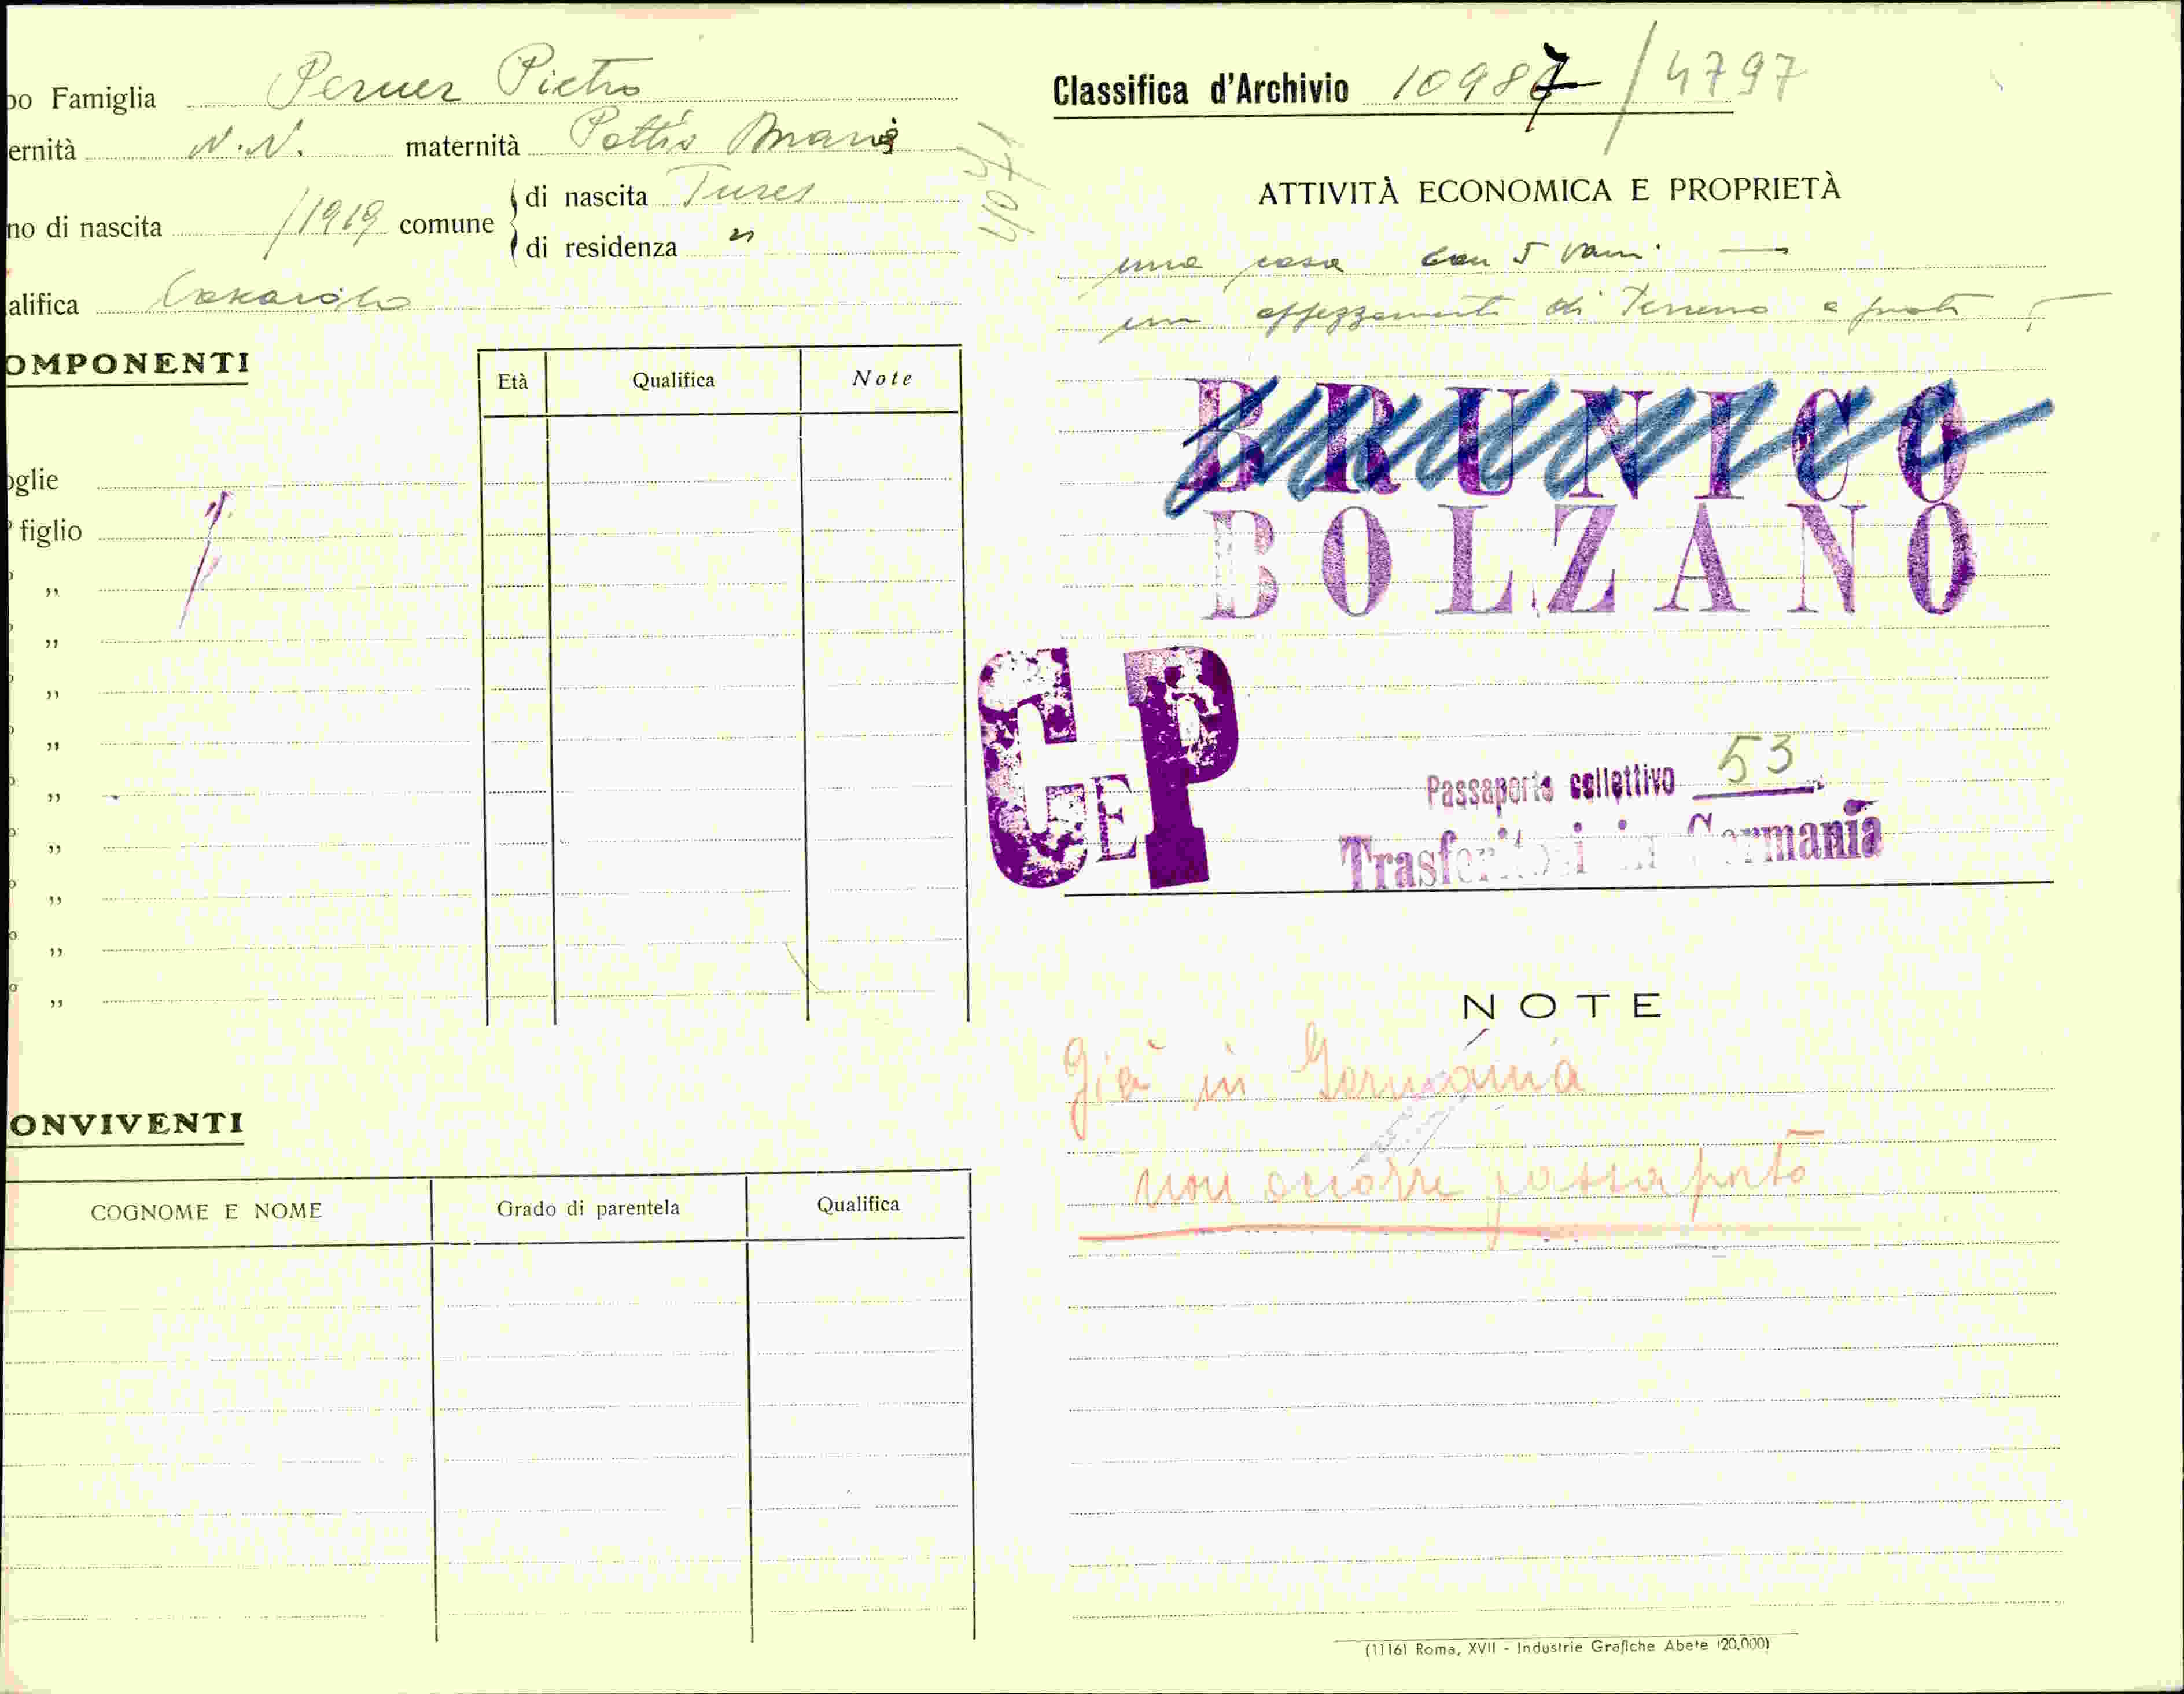 po Famiglia Perner Pietro
ernità N.N. maternità Pattis Maria
no di nascita /1919 comune di nascita Tures
di residenza "
alifica
OMPONENTI
Età Qualifica Note
oglie
figlio
"
"
"
"
"
"
"
"
"
ONVIVENTI
COGNOME E NOME Grado di parentela Qualifica
Classifica d'Archivio 10987/4797
ATTIVITÀ ECONOMICA E PROPRIETÀ
una casa con 5 vani
un appezzamento di terreno a prato
BRUNICO
BOLZANO
CEP
Passaporto collettivo 53
Trasferitosi in Germania
NOTE
Già in Germania
non occorre passaporto
(1116) Roma, XVII - Industrie Grafiche Abete (20.000)